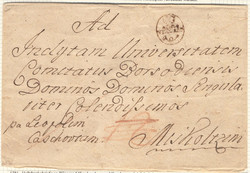 Ad
Inclytam Universitatem
Comitatus Borsodiensis
Dominos Dominos Singula
riter Colendissimos
per Leopolim
Caschoviam
Miskoltzini